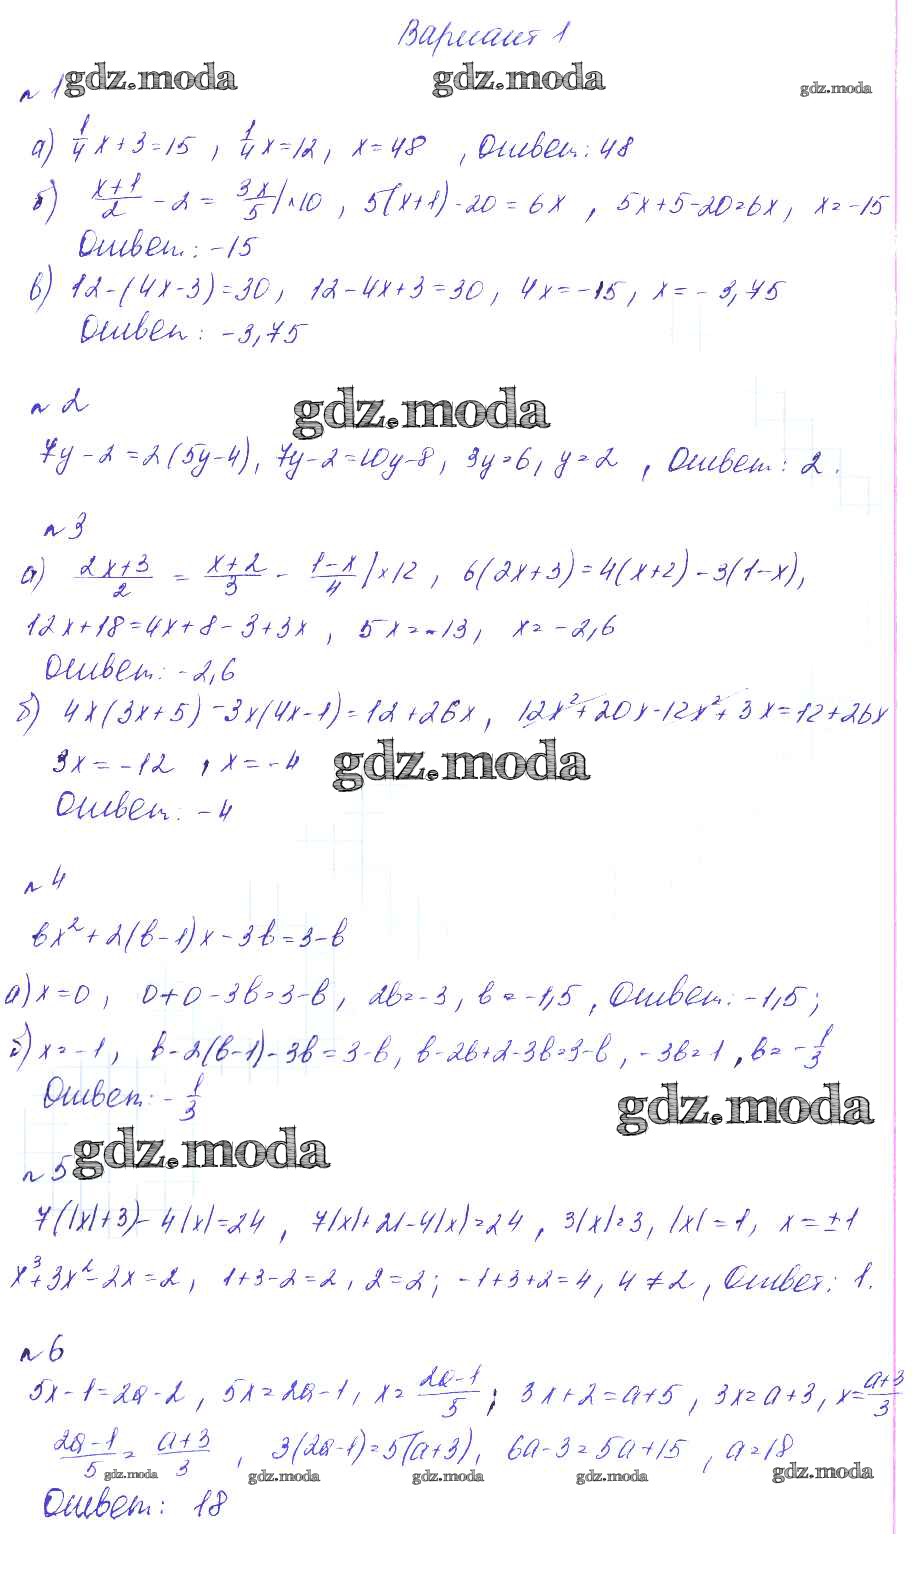 Вариант 1
gdz.moda gdz.moda gdz.moda
№ 1
а) 1/4 x + 3 = 15 , 1/4 x = 12 , x = 48 , Ответ: 48
б) (x+1)/2 - 2 = 3x/5 | ×10 , 5(x+1) - 20 = 6x , 5x+5-20=6x , x = -15
Ответ: -15
в) 12-(4x-3)=30, 12-4x+3=30, 4x=-15, x=-3,75
Ответ: -3,75
№ 2
gdz.moda
7y-2=2(5y-4), 7y-2=10y-8, 3y=6, y=2 , Ответ: 2.
№ 3
а) (2x+3)/2 = (x+2)/3 - (1-x)/4 | ×12 , 6(2x+3)=4(x+2)-3(1-x),
12x+18=4x+8-3+3x , 5x=-13, x=-2,6
Ответ: -2,6
б) 4x(3x+5)-3x(4x-1)=12+26x, 12x²+20x-12x²+3x=12+26x
3x=-12 , x=-4
gdz.moda
Ответ: -4
№ 4
bx²+2(b-1)x-3b=3-b
а) x=0, 0+0-3b=3-b, 2b=-3, b=-1,5, Ответ: -1,5;
б) x=-1, b-2(b-1)-3b=3-b, b-2b+2-3b=3-b, -3b=1, b=-1/3
Ответ: -1/3
gdz.moda
№ 5
gdz.moda
7(|x|+3)-4|x|=24 , 7|x|+21-4|x|=24 , 3|x|=3, |x|=1, x=±1
x³+3x²-2x=2, 1+3-2=2, 2=2; -1+3+2=4, 4≠2, Ответ: 1.
№ 6
5x-1=2a-2 , 5x=2a-1, x=(2a-1)/5 ; 3x+2=a+5 , 3x=a+3, x=(a+3)/3
(2a-1)/5 = (a+3)/3 , 3(2a-1)=5(a+3), 6a-3=5a+15 , a=18
gdz.moda gdz.moda gdz.moda gdz.moda gdz.moda
Ответ: 18